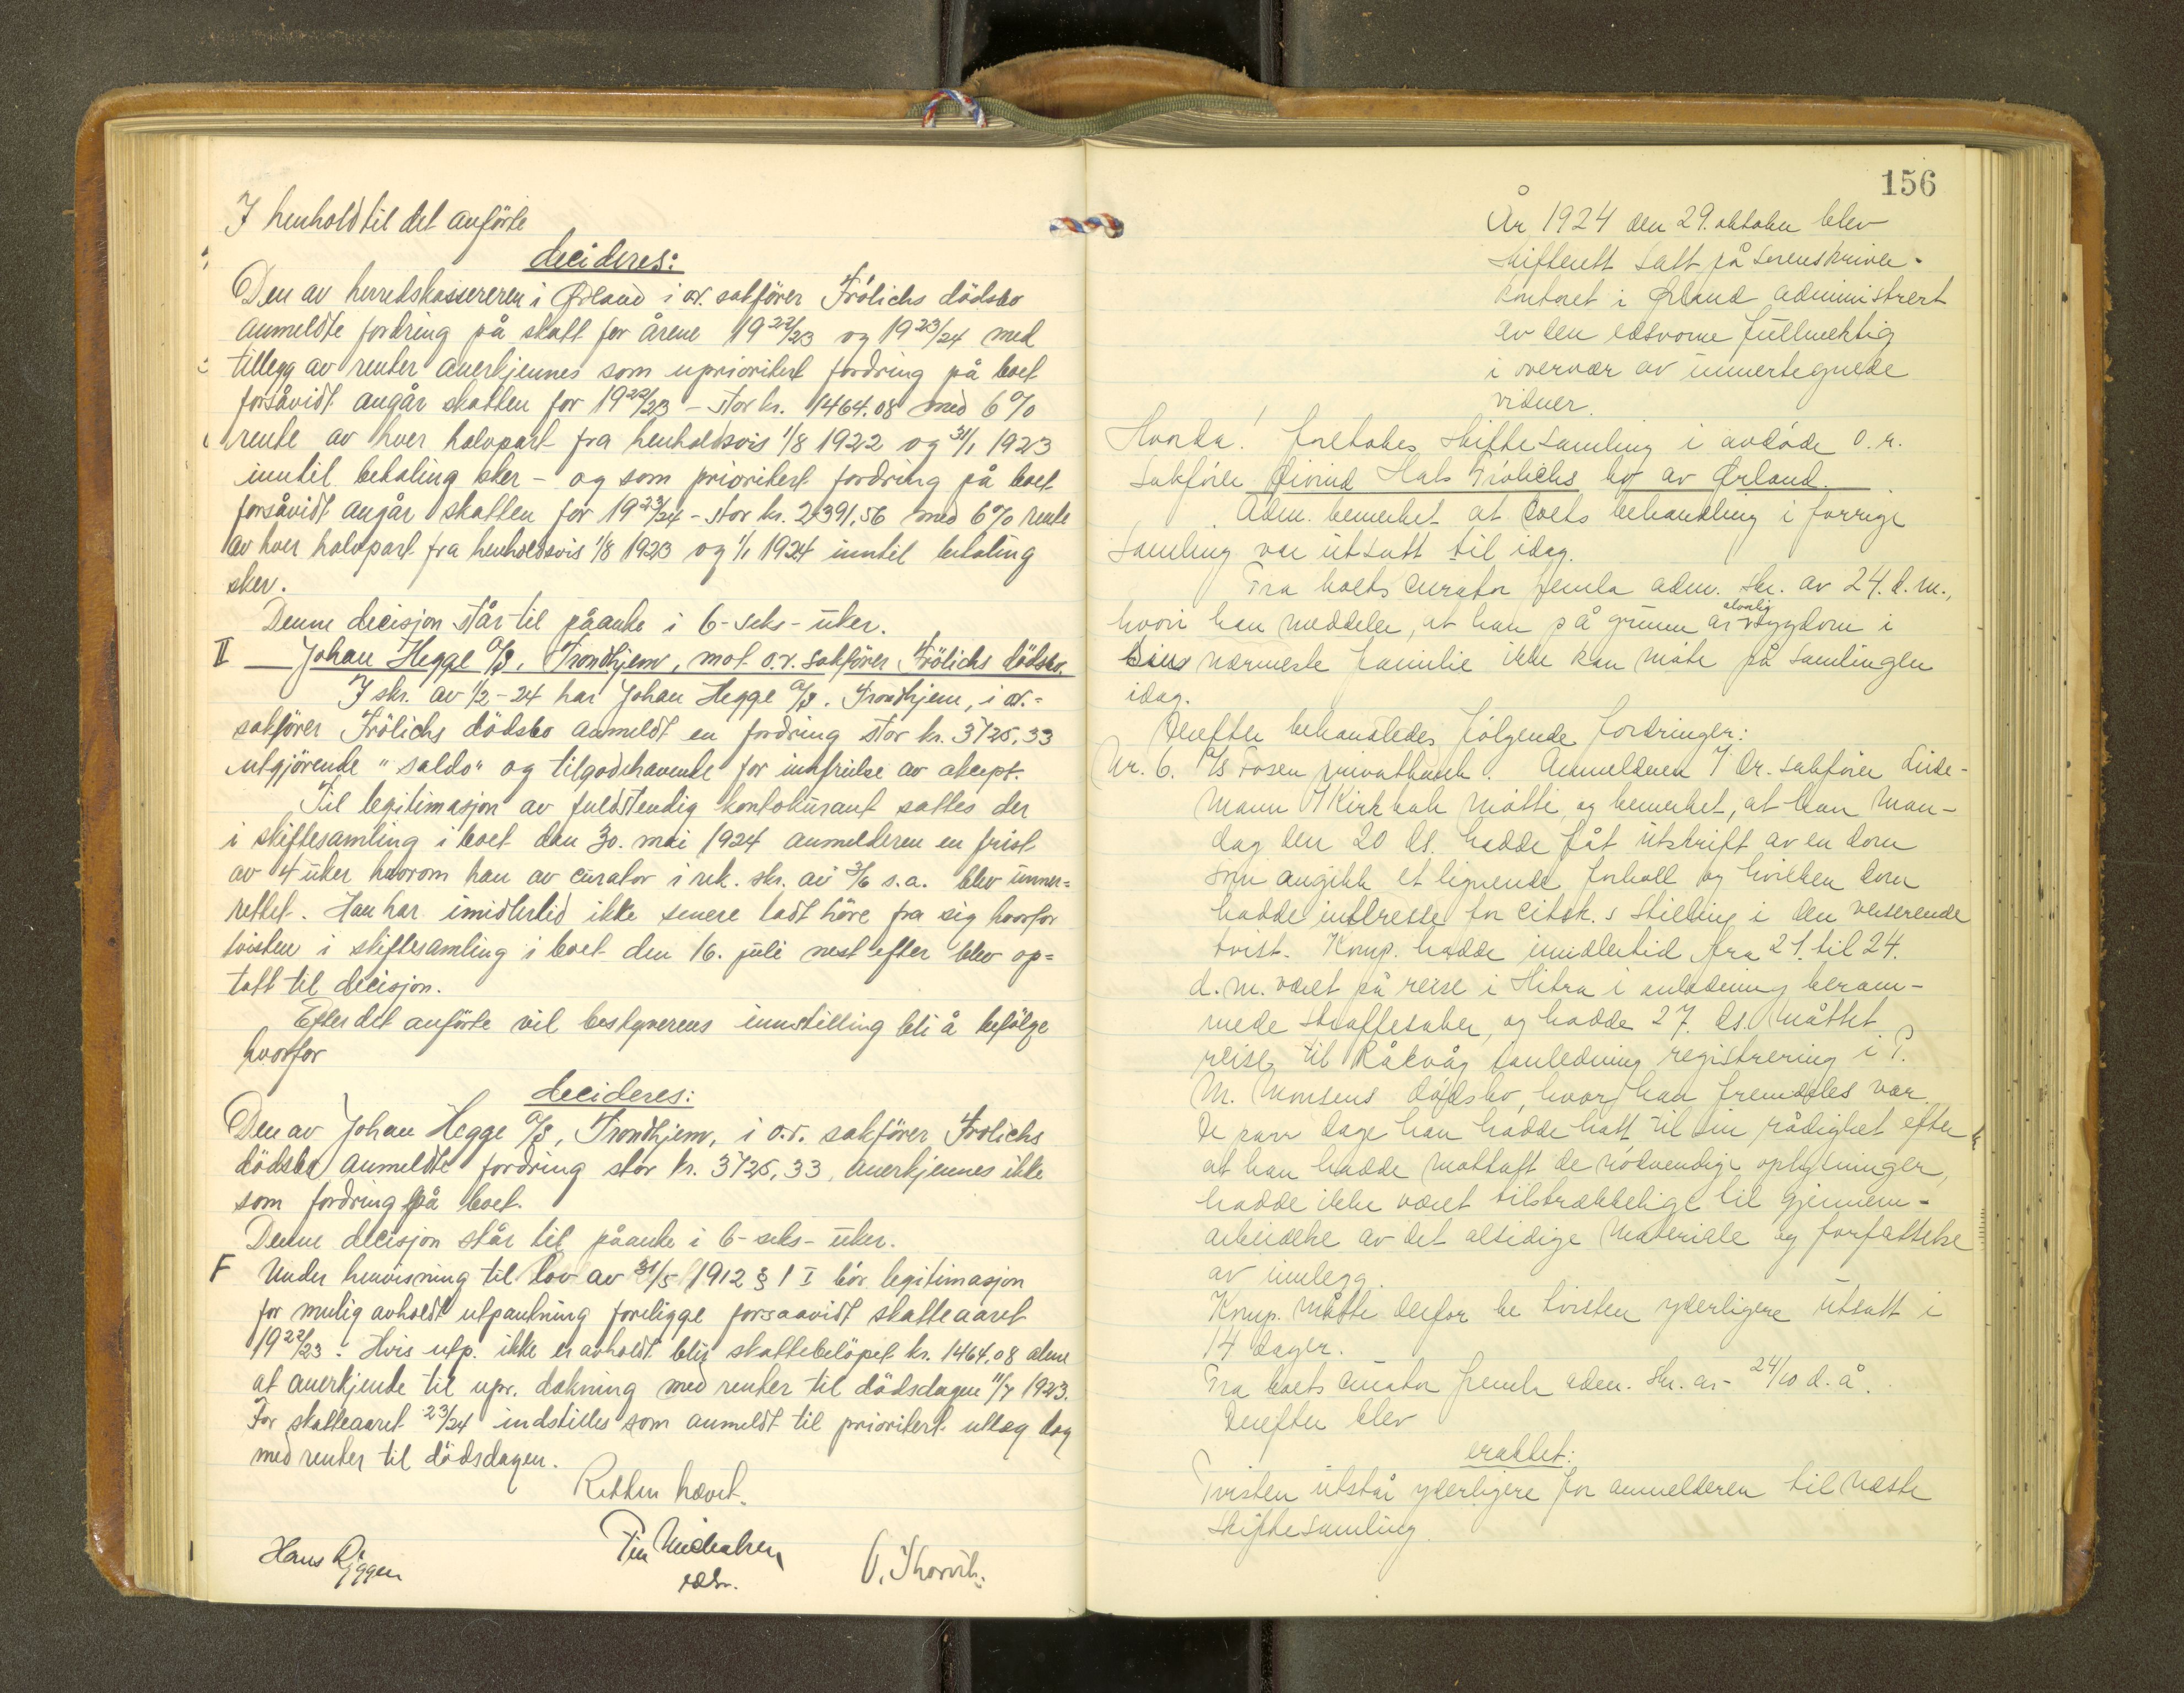 I henhold til det anförte
decideres:
Den av herredskassereren i Ørland i o.r. sakförer Frölichs dödsbo
anmeldte fordring på skatt for årene 1922/23 og 1923/24 med
tillegg av renter anerkjennes som uprioritert fordring på boet
forsåvidt angår skatten for 1922/23 - stor kr. 1464.08 med 6%
rente av hver halvpart fra henholdsvis 1/8 1922 og 31/1 1923
inntil betaling sker - og som prioritert fordring på boet
forsåvidt angår skatten for 1923/24 - stor kr. 2391,56 med 6% rente
av hver halvpart fra henholdsvis 1/8 1923 og 1/1 1924 inntil betaling
sker.
Denne decisjon står til påanke i 6-seks-uker.
II Johan Hegge A/S, Trondhjem, mot o.r. sakförer Frölichs dödsbo.
I skr. av 1/2-24 har Johan Hegge A/S. Trondhjem, i o.r.=
sakförer Frölichs dödsbo anmeldt en fordring stor kr. 3725,33
utgjörende "saldo" og tilgodehavende for innfrielse av aksept.
Til legitimasjon av fuldstendig kontokurant sattes der
i skiftesamling i boet den 30. mai 1924 anmelderen en frist
av 4 uker hvorom han av curator i rek. skr. av 3/6 s.a. blev unner=
rettet. Han har imidlertid ikke senere ladt höre fra sig hvorfor
tvisten i skiftesamling i boet den 16. juli nest efter blev op=
tatt til decisjon.
Efter det anförte vil bestyrerens innstilling bli å befölge
hvorfor
decideres:
Den av Johan Hegge A/S, Trondhjem, i o.r. sakförer Frölichs
dödsbo anmeldte fordring stor kr. 3725,33, anerkjennes ikke
som fordring på boet.
Denne decisjon står til påanke i 6-seks-uker.
F Under henvisning til lov av 31/5 1912 § 1 I bör legitimasjon
for mulig avholdt utpantning foreligge forsaavidt skatteaaret
1922/23. Hvis utp. ikke er avholdt blir skattebelöpet kr. 1464,08 alene
at anerkjende til upr. dækning med renter til dödsdagen 11/7 1923.
For skatteaaret 23/24 indstilles som anmeldt til prioritert utlæg dog
med renter til dödsdagen.
Retten hævet.
Hans Riggen
Fin Michalsen
edsv.
O. Thorvik.
156
År 1924 den 29. oktober blev
skifterett satt på sorenskriver-
kontoret i Ørland administrert
av den edsvorne fullmektig
i overvær av unnertegnede
vidner.
Hvorda! foretokes skiftesamling i avdøde o.r.
sakfører Øivind Hals Frölichs bo av Ørland.
Adm. bemerket at boets behandling i forrige
samling var utsatt til idag.
Fra boets curator femla adm. skr. av 24. d.m.,
hvori han meddeler, at han på grunn av alvorlig sygdom i
sin nærmeste familie ikke kan møte på samlingen
idag.
Derefter behandledes følgende fordringer:
Nr. 6. A/S Fosen privatbank. Anmelderen v/ Or. sakfører Linde-
mann v/ Kirkbak møtte, og bemerket, at han man-
dag den 20 ds. hadde fåt utskrift av en dom
som angikk et lignende forhold og hvilken dom
hadde interesse for citsk.s stilling i den verserende
tvist. Komp. hadde imidlertid fra 21. til 24.
d.m. været på reise i Hitra i anledning beram-
mede straffesaker, og hadde 27. ds. måttet
reise til Råkvåg i anledning registrering i P.
M. Monsens dødsbo, hvor han fremdeles var.
De par dage han hadde hatt til sin rådighet efter
at han hadde mottatt de nødvendige oplysninger,
hadde ikke været tilstrækkelige til gjennem-
arbeidelse av det alsidige materiale og forfattelse
av innlegg.
Komp. måtte derfor be tvisten yderligere utsatt i
14 dager.
Fra boets curator femla adm. skr. av 24/10 d.å.
Derefter blev
eraktet:
Tvisten utstår yderligere for anmelderen til næste
skiftesamling.